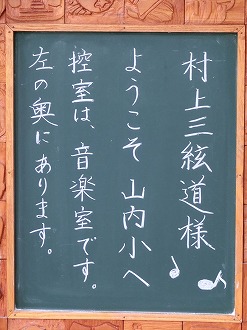 村上三絃道様
ようこそ 山内小へ
控室は、音楽室です。
左の奥にあります。